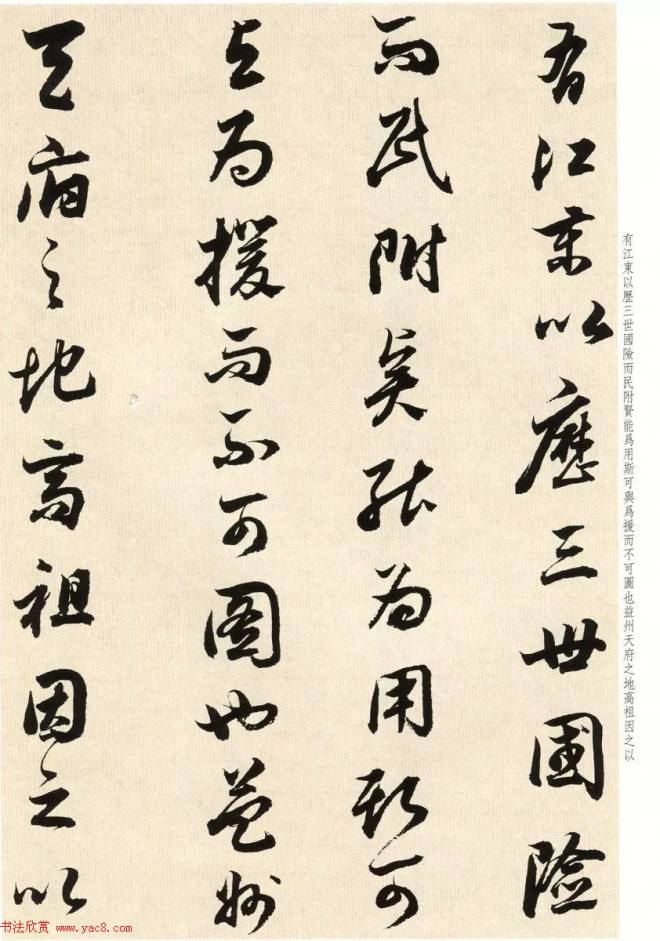 有江東以歷三世國險
而民附賢能為用斯可
與為援而不可圖也益州
天府之地高祖因之以
有江東以歷三世國險而民附賢能爲用斯可與爲援而不可圖也益州天府之地高祖因之以
书法欣赏 www.yac8.com